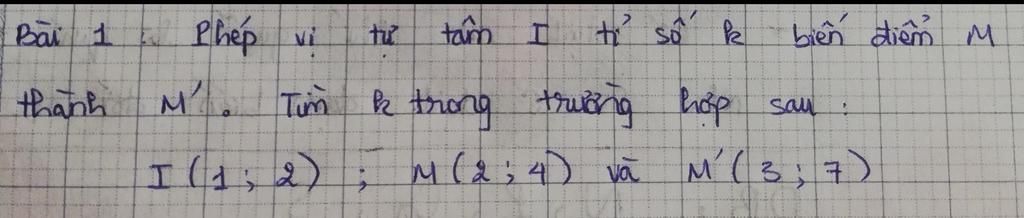 Bài 1 : Phép vị tự tâm I tỉ số k biến điểm M
thành M'. Tìm k trong trường hợp sau :
I (1 ; 2) ; M (2 ; 4) và M' (3 ; 7)